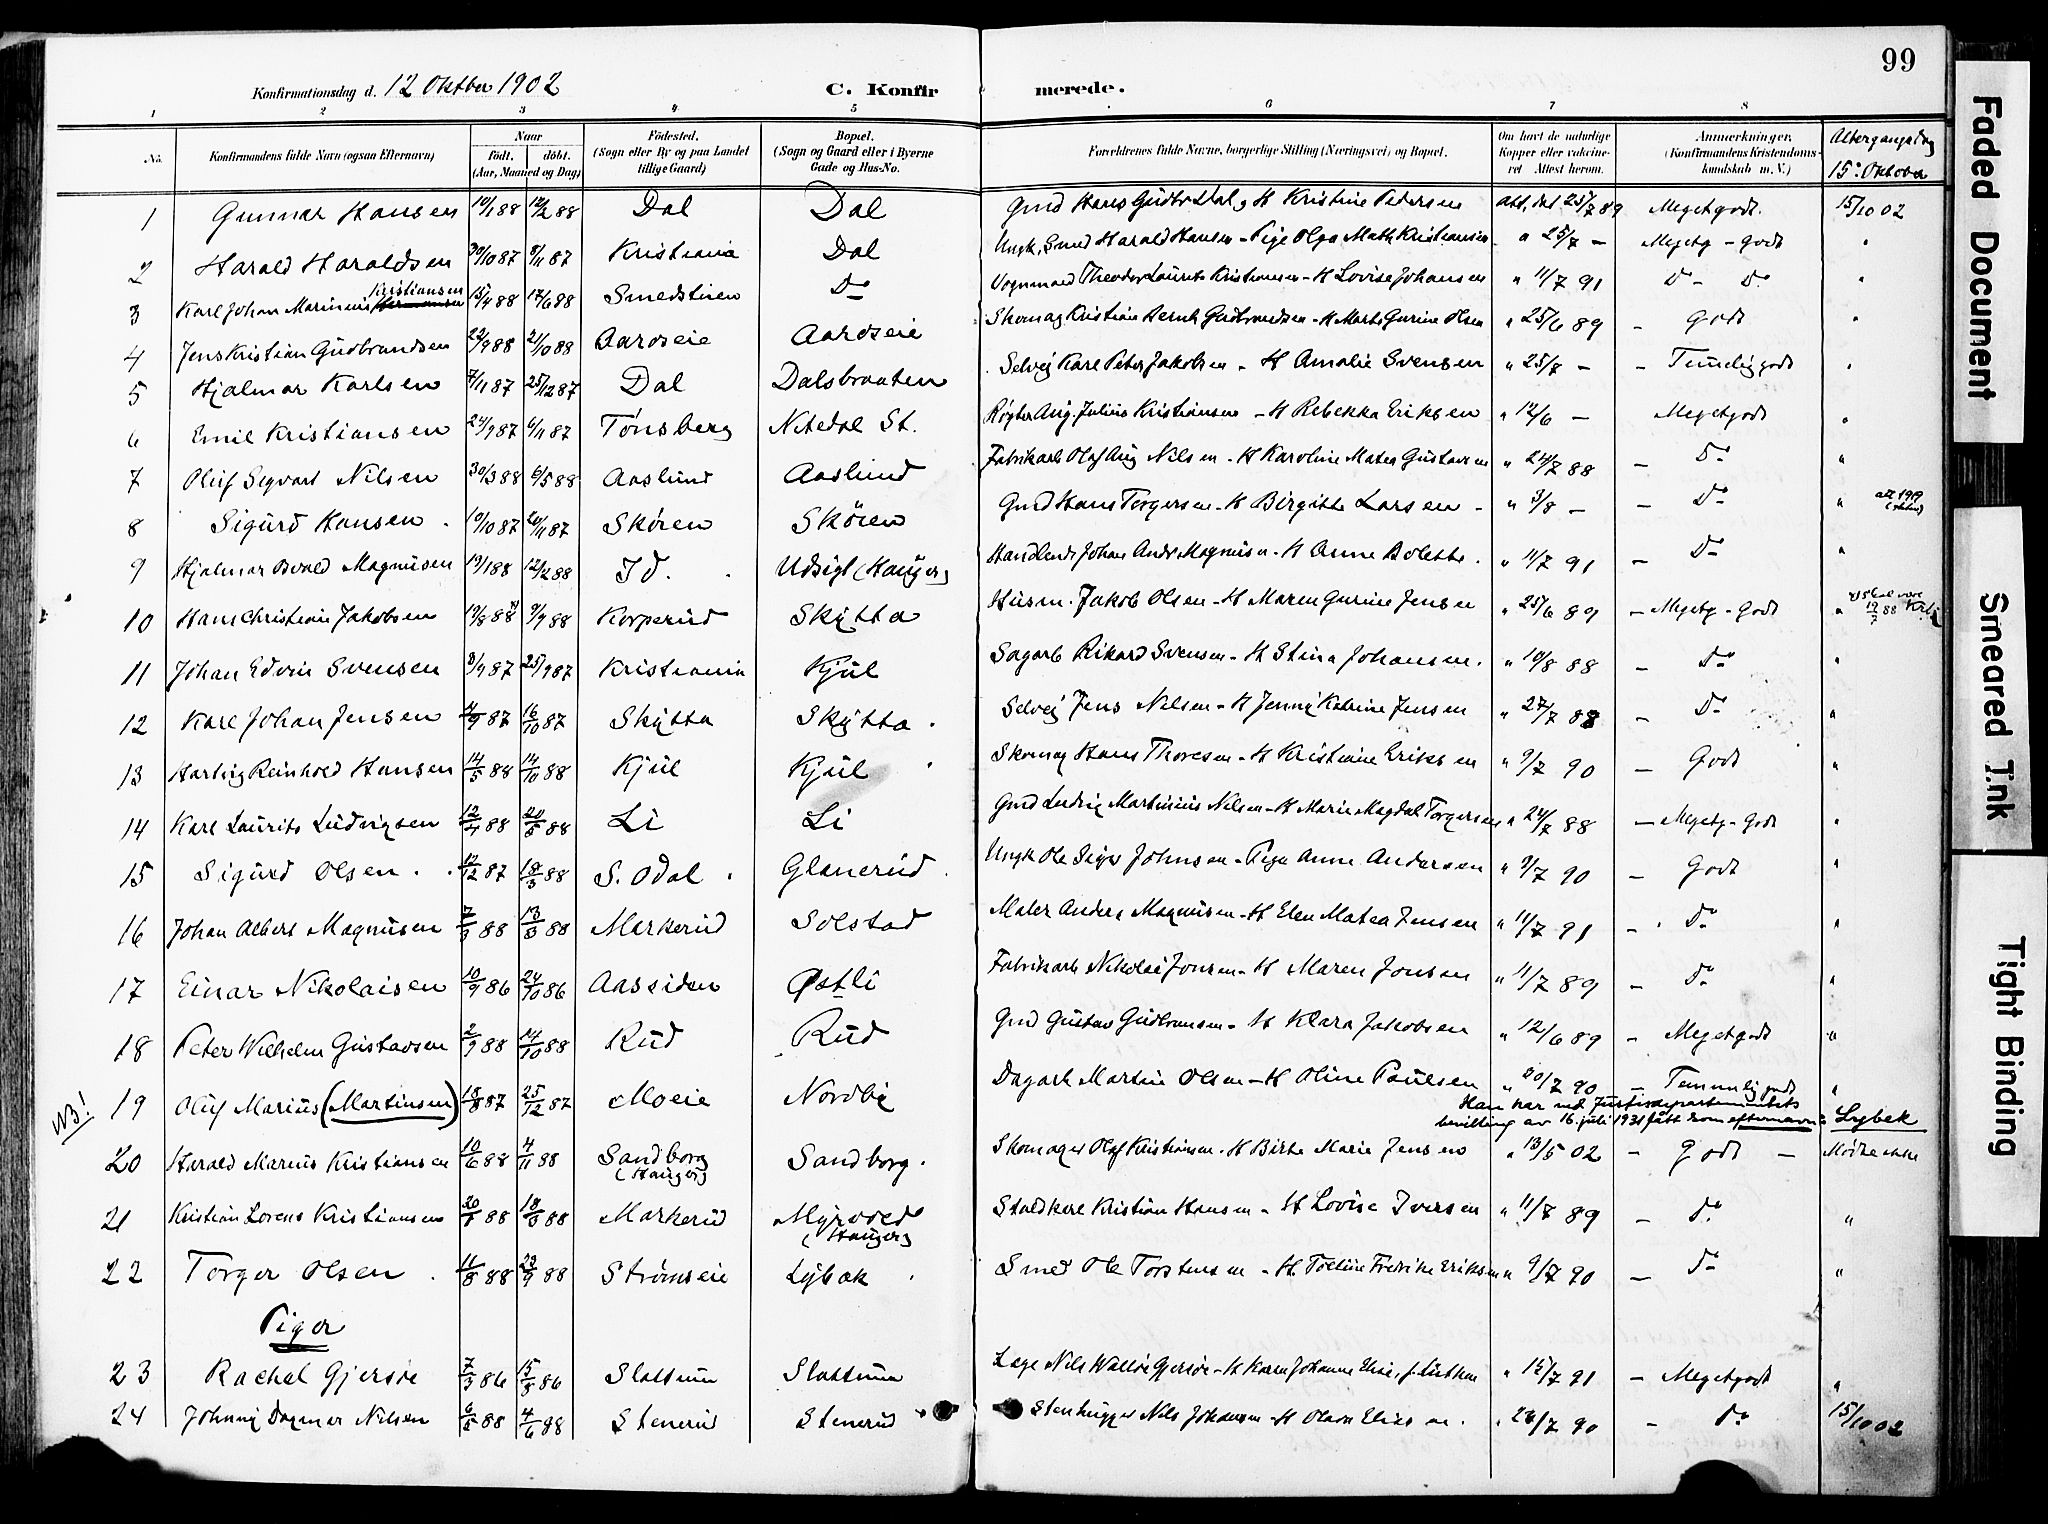 99
Konfirmationsdag d. 12 Oktber 1902 C. Konfirmerede.
1 2 3 4 5 6 7 8
No. Konfirmandens fulde Navn (ogsaa Efternavn) Naar født. døbt. (Aar, Maaned og Dag) Fødested. (Sogn eller By og paa Landet tillige Gaard) Bopæl. (Sogn og Gaard eller i Byerne Gade og Hus-No. Forældrenes fulde Navne, borgerlige Stilling (Næringsvei) og Bopæl. Om havt de naturlige Kopper eller vakcineret Attest herom. Anmærkninger. (Konfirmandens Kristendomskundskab m. V.) Altergangsdag 15. Oktober
1 Gunnar Hansen 10/1 88 12/2 88 Dal Dal Gmd Hans Gudbr Dal, H Kristine Pedersen att. dat. 25/7 89 Megetgodt. 15/10 02
2 Harald Haraldsen 30/10 87 8/11 87 Kristiania Dal Ungk. Smed Harald Hansen - Pige Olga Math Kristiansen " 25/7 - Megetg - godt "
3 Karl Johan Marinius Kristiansen 15/4 88 17/6 88 Smedstuen Do Vognmand Theodor Laurits Kristiansen - H Lovise Johansen " 11/7 91 Do - Do "
4 Jens Kristian Gudbrandsen 22/9 88 21/10 88 Aaroseie Aaroseie Skomag Kristian Bernh Gudbrandsen - H Marte Gurine Olsen " 25/6 89 - Godt "
5 Hjalmar Karlsen 7/11 87 25/12 87 Dal Dalsbraaten Selvej Karl Peter Jakobsen - H Amalie Svensen " 25/7 - - Temmelig godt "
6 Emil Kristiansen 24/9 87 6/11 87 Tønsberg Nitedal St. Røgter Aug. Julius Kristiansen - H Rebekka Eriksen " 12/6 - Megetgodt "
7 Oluf Sigvart Nilsen 30/3 88 6/5 88 Aaslund Aaslund Fabrikarb Olaf Aug Nilsen - H Karoline Matea Gustavsen " 24/7 88 - Do "
8 Sigurd Hansen 10/10 87 20/11 87 Skøren Skøren Gmd Hans Torgersen - H Birgitte Larsen - " 3/8 - - Do " att 1919
9 Hjalmar Osvald Magnusen 19/1 88 12/2 88 Id. Udsigt (Hauger) Handlende Johan Andr Magnusen - H Anne Bolette. " 11/7 91 - Do "
10 Hans Christian Jakobsen 19/8 88 9/9 88 Korperud Skytta Husm. Jakob Olsen - H Maren Gurine Jensen " 25/6 89 - Megetg - Godt " skal være 19/7 88
11 Johan Edvin Svensen 8/9 87 25/9 87 Kristiania Kjul Sagarb Rikard Svensen - H Stina Johansen. " 10/8 88 - Do "
12 Karl Johan Jensen 4/9 87 16/10 87 Skytta Skytta. Selvej Jens Nilsen - H Jenny Katrine Jensen " 27/7 88 - Do "
13 Hartvig Reinhold Hansen 14/5 88 14/10 88 Kjul Kjul Skomag Hans Thoresen - H Kristiane Eriksen " 9/7 90 - Godt "
14 Karl Laurits Ludvigsen 12/4 88 20/5 88 Li Li Gmd Ludvig Martinius Nilsen - H Marie Magdal Torgersen " 24/7 88 - Megetg - Godt "
15 Sigurd Olsen. 12/12 87 18/3 88 S. Odal. Glanerud. Ungk Ole Siger Johnsen - Pige Anne Andersen " 9/7 90 - Godt "
16 Johan Albert Magnusen 7/3 88 13/3 88 Markerud Solstad Maler Anders Magnusen - H Elen Matea Jensen " 11/7 91 - Do "
17 Einar Nikolaisen 10/9 86 24/10 86 Aassiden Østli Fabrikarb Nikolai Jonsen - H Maren Jonsen " 11/7 89 - Do "
18 Peter Wilhelm Gustavsen 2/9 88 14/10 88 Rud Rud Gmd Gustav Gudbransen - H Klara Jakobsen " 12/6 89 - Megetgodt "
NB! 19 Oluf Marius (Martinsen) 18/8 87 25/12 87 Moeie Nordby Dagarb Martin Olsen - H Oline Paulsen " 30/7 90 - Temmelig godt "
Han har ved Justisdepartementets bevilling av 16. juli 1931 fått som efternavn: Lybek
20 Harald Marius Kristiansen 10/6 88 4/11 88 Sandborg (Hauger) Sandborg. Skomager Olaf Kristiansen - H Birthe Marie Jensen " 13/5 02 - Godt - Mødte ikke
21 Kristian Lorens Kristiansen 88 88 Markerud Myrvold (Hauger) Staldkarl Kristian Hansen - H Lovise Iversen " 11/7 89 - Do "
22 Torger Olsen. 11/8 88 23/9 88 Strømseie Lybæk Smed Ole Torstensen - H. Toline Fredrike Eriksen " 9/7 90 - Do "
Piger
23 Rachel Gjersøe 7/3 86 15/8 86 Slattum Slattum Læge Nils Walløe Gjersøe - H Karen Johanne Elise, f. Lütken " 15/7 91 - Megetgodt "
24 Johnny Dagmar Nilsen 6/5 88 4/6 88 Stenerud Stenerud Stenhugger Nils Johansen - H Olava " 24/7 90 - Do 15/10 02
Faded Document
Smeared Ink
Tight Binding